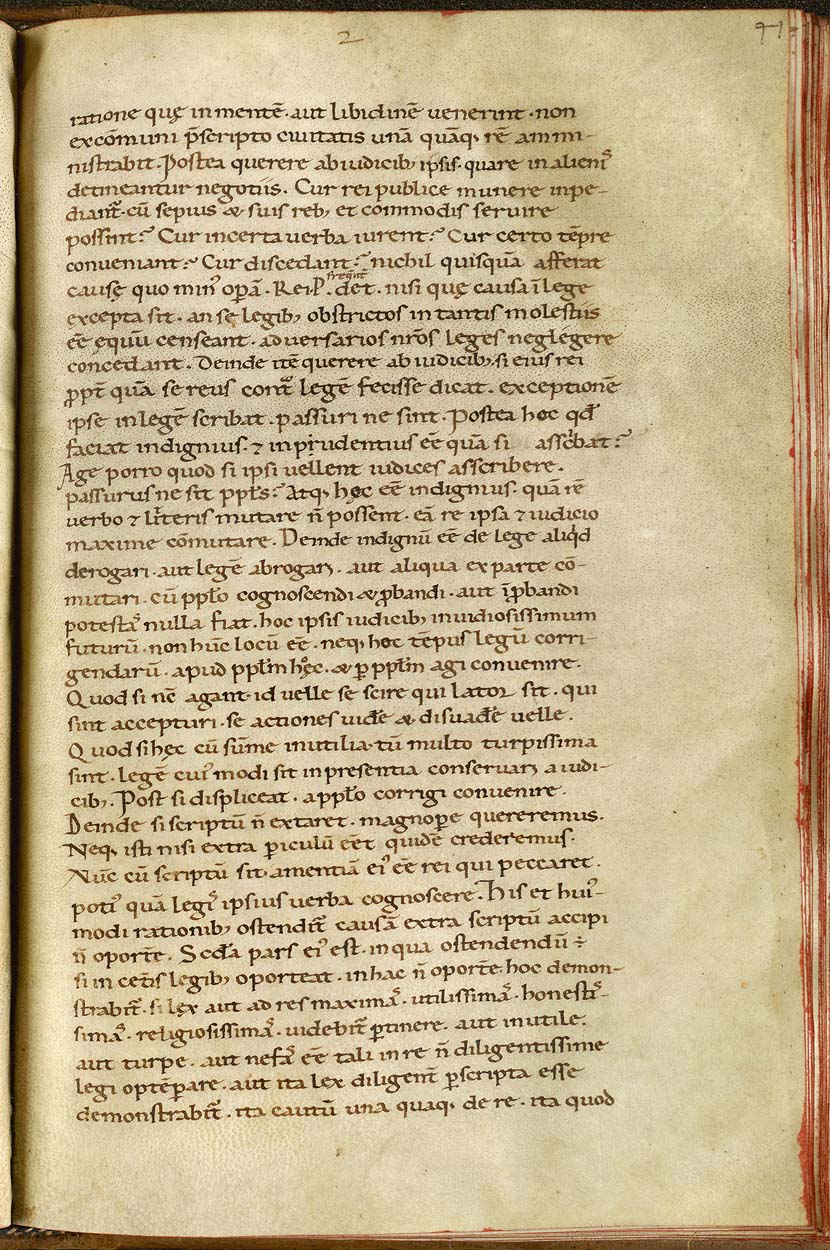 2
ratione quę in mentē. aut libidinē venerint. non
ex cōmuni p̄scripto civitatis unā quāq, rē ammi-
nistrabit. Postea querere ab iudicib, ipsis. quare in alieni᾽
detineantur negotiis. Cur rei publice munere inpe-
diant᷑. cū sepius & suis reb, et commodis servire
possint? Cur incerta verba iurent? Cur certo tēpre
conveniant? Cur discedant? nichil quisquā afferat
causę quo min᾽ opā. Rei. P. det. nisi quę causa ī lege
frequnt
excepta sit. an se legib, obstrictos in tantis molestiis
eē equū censeant. adversarios nr̄os leges neglegere
concedant. Deinde itē querere ab iudicib, si eius rei
ꝓpt̄ quā se reus cont᷑ legē fecisse dicat. exceptionē
ipse in legē scribat. passuri ne sint. Postea hoc qđ
faciat indignius. ⁊ inprudentius eē quā si asscͥbat?
Age porro quod si ipsi vellent iudices asscribere.
passurus ne sit ppłs? Atq, hoc eē indignius. quā rē
verbo ⁊ litteris mutare n̄ possent. eā re ipsa ⁊ iudicio
maxime cōmutare. Deinde indignū eē de lege aliqͥd
derogari. aut legē abrogari. aut aliqua ex parte cō-
mutari. cū ppło cognoscendi & ꝓbandi. aut īꝓbandi
potestas nulla fiat. hoc ipsis iudicib, invidiosissimum
futurū. non hūc locū eē. neq, hoc tēpus legū corri-
gendarū. apud ppłm hęc. & ꝑ ppłm agi convenire.
Quod si nc̄ agant. id velle se scire qui lator sit. qui
sint accepturi. se actiones videre & disuadere velle.
Quod si hęc cū sūme inutilia. tū multo turpissima
sint. legē cui᾽ modi sit in presentia conservari a iudi-
cib,. Post si displiceat. a ppło corrigi convenire.
Deinde si scriptū n̄ extaret. magnoꝑe quereremus.
Neq, isti nisi extra ꝑiculū eēt quidē crederemus.
Nūc cū scriptū sit. amentiā ei᾽ eē rei qui peccaret.
poti᾽ quā legis ipsius verba cognoscere. His et hui᾽-
modi rationib, ostendit᷑ causā extra scriptū accipi
n̄ oporte. Scđa pars ei᾽ est. in qua ostendendū ÷
si in cet̄is legib, oporteat. in hac n̄ oporte. hoc demon-
strabit᷑. si lex aut ad res maximas. utilissimas. honestis-
simas. religiosissimas. videbit᷑ ꝑtinere. aut inutile.
aut turpe. aut nefas eē tali in re n̄ diligentissime
legi optēꝑare. aut ita lex diligent̄ ꝑscripta esse
demonstrabit᷑. ita cautū una quaq, de re. ita quod